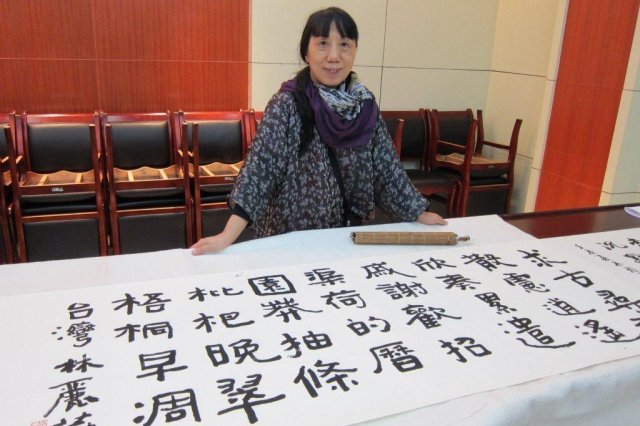 求古尋
散慮逍遙
欣奏累遣
戚謝歡招
渠荷的曆
園莽抽條
枇杷晚翠
梧桐早凋
台灣林麗